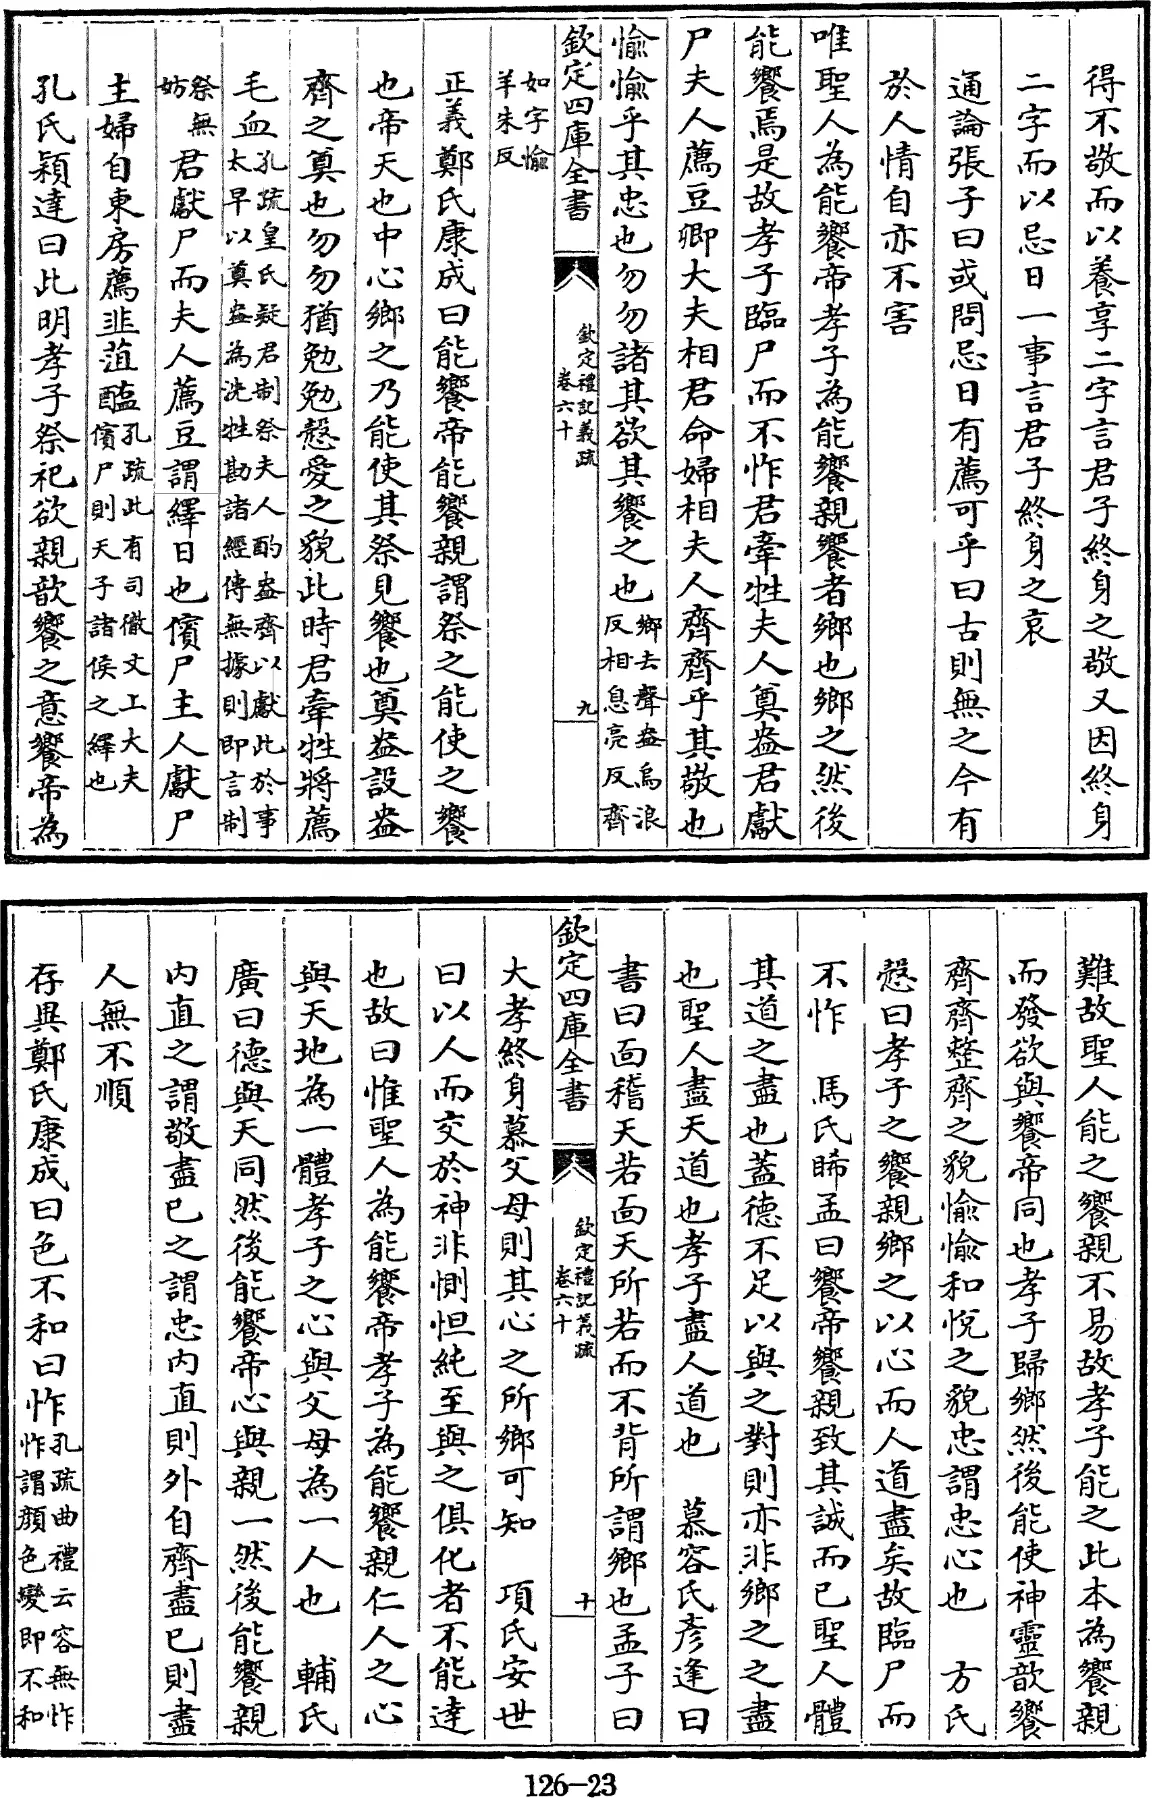 得不敬而以養享二字言君子終身之敬又因終身
二字而以忌日一事言君子終身之哀
通論張子曰或問忌日有薦可乎曰古則無之今有
於人情自亦不害
唯聖人為能饗帝孝子為能饗親饗者鄉也鄉之然後
能饗焉是故孝子臨尸而不怍君牽牲夫人奠盎君獻
尸夫人薦豆卿大夫相君命婦相夫人齊齊乎其敬也
愉愉乎其忠也勿勿諸其欲其饗之也鄉去聲盎烏浪反相息亮反齊
欽定四庫全書
欽定禮記義疏
卷六十
九
如字愉羊朱反
正義鄭氏康成曰能饗帝能饗親謂祭之能使之饗
也帝天也中心鄉之乃能使其祭見饗也奠盎設盎
齊之奠也勿勿猶勉勉慤愛之貌此時君牽牲將薦
毛血孔疏皇氏疑君制祭夫人酌盎齊以獻此於事太早以奠盎為洗牲勘諸經傳無據則即言制
祭無妨君獻尸而夫人薦豆謂繹日也儐尸主人獻尸
主婦自東房薦韭菹醢孔疏此有司徹文上大夫儐尸則天子諸侯之繹也
孔氏穎達曰此明孝子祭祀欲親歆饗之意饗帝為
難故聖人能之饗親不易故孝子能之此本為饗親
而發欲與饗帝同也孝子歸鄉然後能使神靈歆饗
齊齊整齊之貌愉愉和悅之貌忠謂忠心也　方氏
慤曰孝子之饗親鄉之以心而人道盡矣故臨尸而
不怍　馬氏晞孟曰饗帝饗親致其誠而已聖人體
其道之盡也蓋德不足以與之對則亦非鄉之之盡
也聖人盡天道也孝子盡人道也　慕容氏彥逢曰
書曰面稽天若面天所若而不背所謂鄉也孟子曰
欽定四庫全書
欽定禮記義疏
卷六十
十
大孝終身慕父母則其心之所鄉可知　項氏安世
曰以人而交於神非惻怛純至與之俱化者不能達
也故曰惟聖人為能饗帝孝子為能饗親仁人之心
與天地為一體孝子之心與父母為一人也　輔氏
廣曰德與天同然後能饗帝心與親一然後能饗親
內直之謂敬盡已之謂忠內直則外自齊盡已則盡
人無不順
存異鄭氏康成曰色不和曰怍孔疏曲禮云容無怍怍謂顏色變即不和
126-23